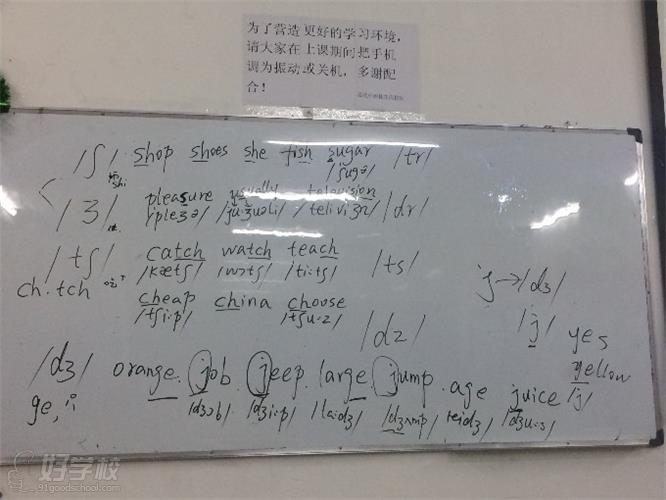 为了营造更好的学习环境,
请大家在上课期间把手机
调为振动或关机，多谢配
合!
/ʃ/ shop shoes she fish sugar /tr/
shi /ʃugə/
/ʒ/ pleasure usually television /dr/
/pleʒə/ /ju:ʒuəli/ /teliviʒn/
/tʃ/ catch watch teach /ts/
/kætʃ/ /wɔtʃ/ /ti:tʃ/
ch. tch
cheap china choose
/tʃi:p/ /tʃu:z/
/dz/
j→/dʒ/
/j/ yes
yellow
/j/
/dʒ/ orange. job jeep. large. jump. age juice
ge, j
/dʒɔb/ /dʒi:p/ /la:dʒ/ /dʒʌmp/ /eidʒ/ /dʒu:s/
好学校
91goodschool.com